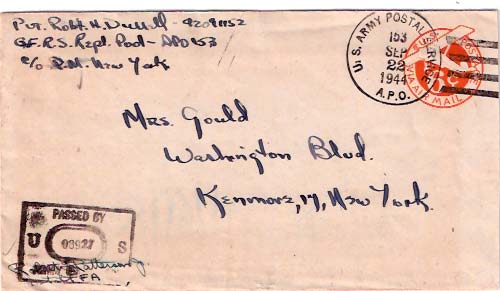 Pvt. Robt. H. - 42091152
G.F.R.S. Repl. Pool - APO 153
c/o P.M. New York
U.S. ARMY POSTAL SERVICE
153
SEP
22
1944
A.P.O.
VIA AIR MAIL
Mrs. Gould
Washington Blvd.
Kenmore, 17, New York.
PASSED BY
U 03927 S